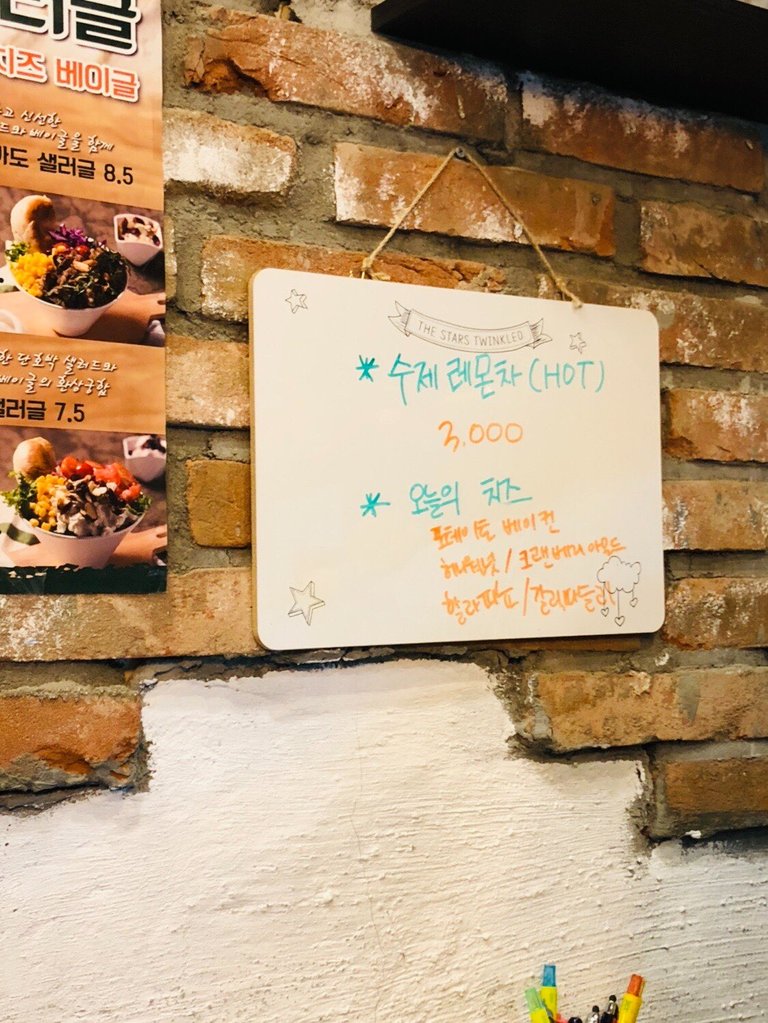 러글
치즈 베이글
고 신선한
드와 베이글을 함께
카도 샐러글 8.5
한 단호박 샐러드와
베이글의 환상궁합
샐러글 7.5
THE STARS TWINKLED
* 수제 레몬차 (HOT)
3,000
* 오늘의 치즈
포테이토 베이컨
헤이즐넛 / 크랜베리 아몬드
할라피뇨 / 갈릭파슬리